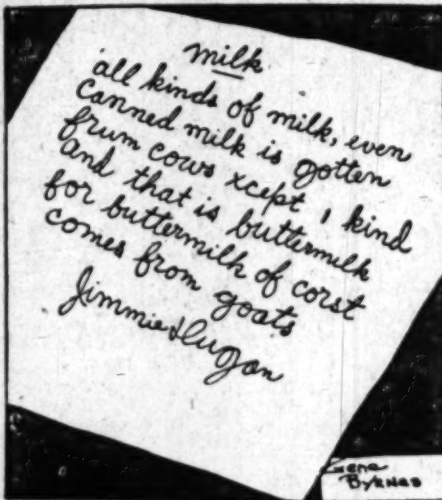 milk
all kinds of milk, even
canned milk is gotten
frum cows xcept 1 kind
and that is buttermelk
for buttermilk of corst
comes from goats
Jimmie Dugan
Gene
Byrnes